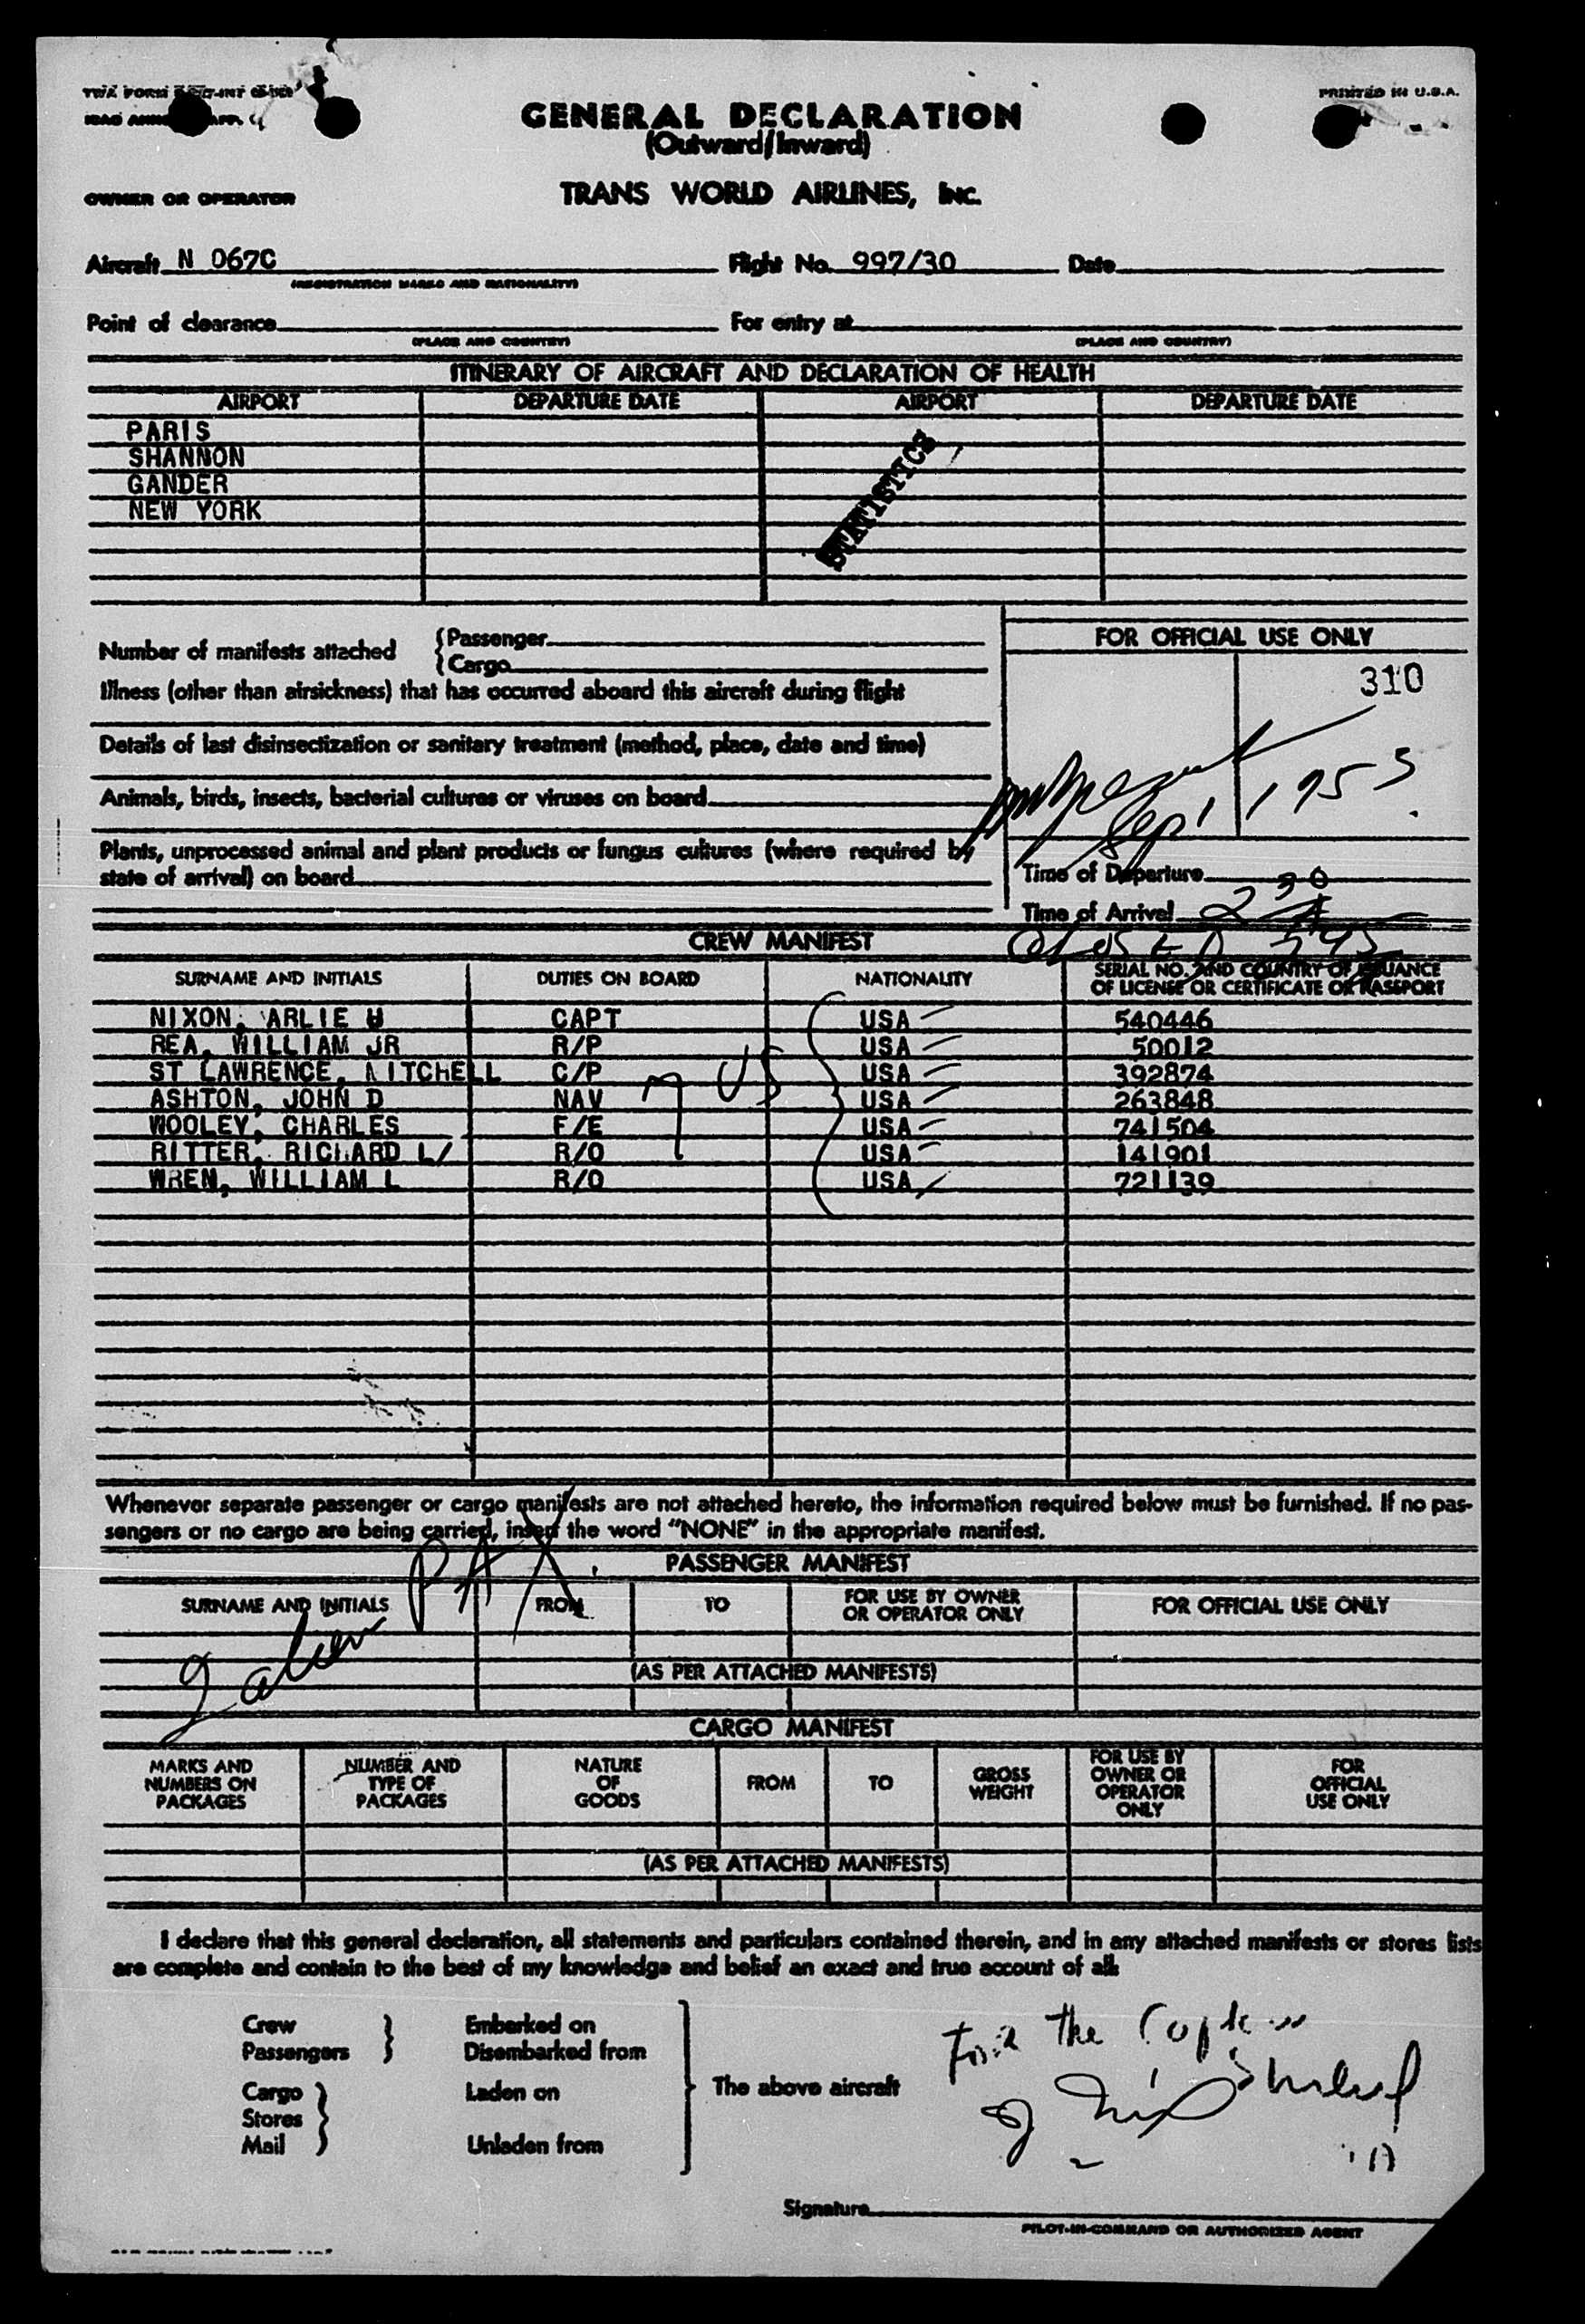 PRINTED IN U.S.A.
GENERAL DECLARATION
(Outward/Inward)
OWNER OR OPERATOR
TRANS WORLD AIRLINES, INC.
Aircraft N 067C Flight No. 997/30 Date
(REGISTRATION MARKS AND NATIONALITY)
Point of clearance For entry at
(PLACE AND COUNTRY) (PLACE AND COUNTRY)
ITINERARY OF AIRCRAFT AND DECLARATION OF HEALTH
AIRPORT DEPARTURE DATE AIRPORT DEPARTURE DATE
PARIS
SHANNON
GANDER
NEW YORK
STATISTICS
Number of manifests attached { Passenger
{ Cargo
FOR OFFICIAL USE ONLY
310
Illness (other than airsickness) that has occurred aboard this aircraft during flight
Details of last disinsectization or sanitary treatment (method, place, date and time)
Animals, birds, insects, bacterial cultures or viruses on board
Sep 1 1955
Plants, unprocessed animal and plant products or fungus cultures (where required by
state of arrival) on board
Time of Departure
Time of Arrival
CREW MANIFEST
SURNAME AND INITIALS DUTIES ON BOARD NATIONALITY SERIAL NO. AND COUNTRY OF ISSUANCE
OF LICENSE OR CERTIFICATE OR PASSPORT
NIXON, ARLIE CAPT USA 540446
REA, WILLIAM JR R/P USA 50012
ST LAWRENCE, MITCHELL C/P USA 392874
ASHTON, JOHN D NAV USA 263848
WOOLEY, CHARLES F/E USA 741504
RITTER, RICHARD L/ R/O USA 141901
WREN, WILLIAM L R/O USA 721139
7 US
Whenever separate passenger or cargo manifests are not attached hereto, the information required below must be furnished. If no pas-
sengers or no cargo are being carried, insert the word "NONE" in the appropriate manifest.
PASSENGER MANIFEST
SURNAME AND INITIALS FROM TO FOR USE BY OWNER
OR OPERATOR ONLY FOR OFFICIAL USE ONLY
alien PAX.
(AS PER ATTACHED MANIFESTS)
CARGO MANIFEST
MARKS AND
NUMBERS ON
PACKAGES
NUMBER AND
TYPE OF
PACKAGES
NATURE
OF
GOODS
FROM
TO
GROSS
WEIGHT
FOR USE BY
OWNER OR
OPERATOR
ONLY
FOR
OFFICIAL
USE ONLY
(AS PER ATTACHED MANIFESTS)
I declare that this general declaration, all statements and particulars contained therein, and in any attached manifests or stores lists
are complete and contain to the best of my knowledge and belief an exact and true account of all:
Crew
Passengers
Embarked on
Disembarked from
Cargo
Stores
Mail
Laden on
Unladen from
The above aircraft
For the
Signature
PILOT-IN-COMMAND OR AUTHORIZED AGENT